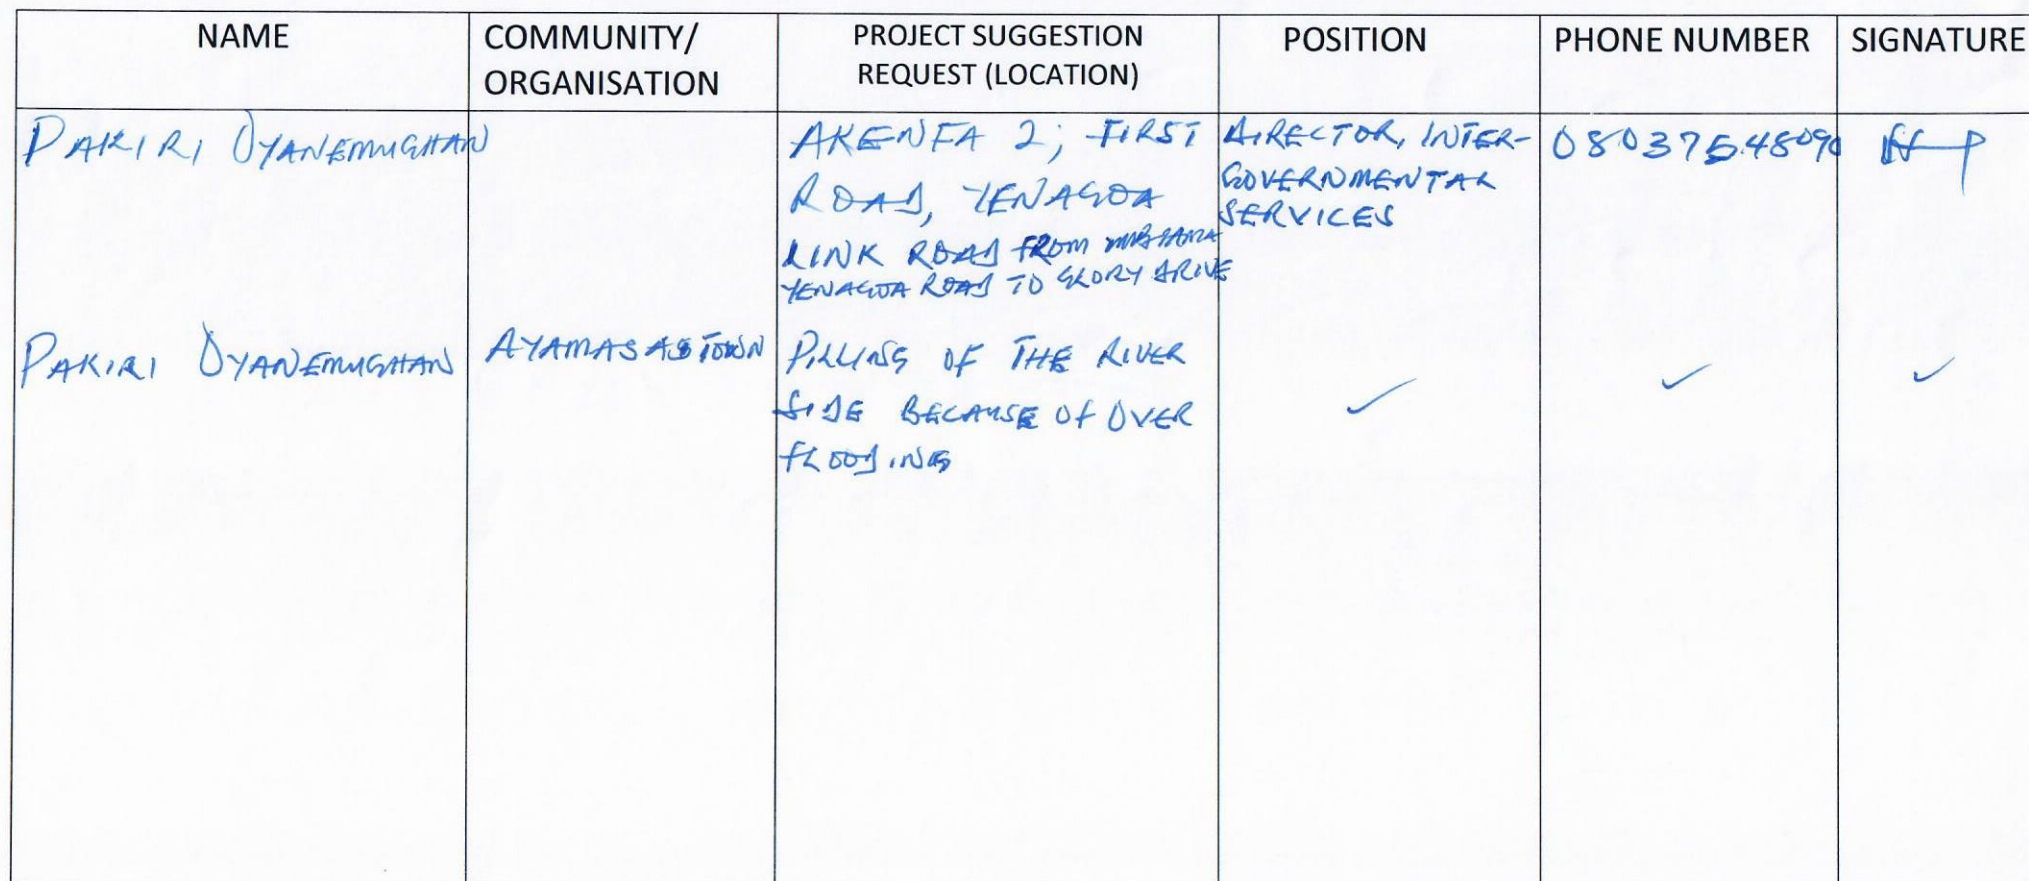 NAME
COMMUNITY/
ORGANISATION
PROJECT SUGGESTION
REQUEST (LOCATION)
POSITION
PHONE NUMBER
SIGNATURE
PAKIRI OYANEMUGHAN
AKENFA 2; FIRST
ROAD, YENAGOA
LINK ROAD FROM MBIAMA
YENAGOA ROAD TO GLORY DRIVE
DIRECTOR, INTER-
GOVERNMENTAL
SERVICES
08037548090
PAKIRI OYANEMUGHAN
AYAMASA TOWN
PILLING OF THE RIVER
SIDE BECAUSE OF OVER
FLOODING
✓
✓
✓